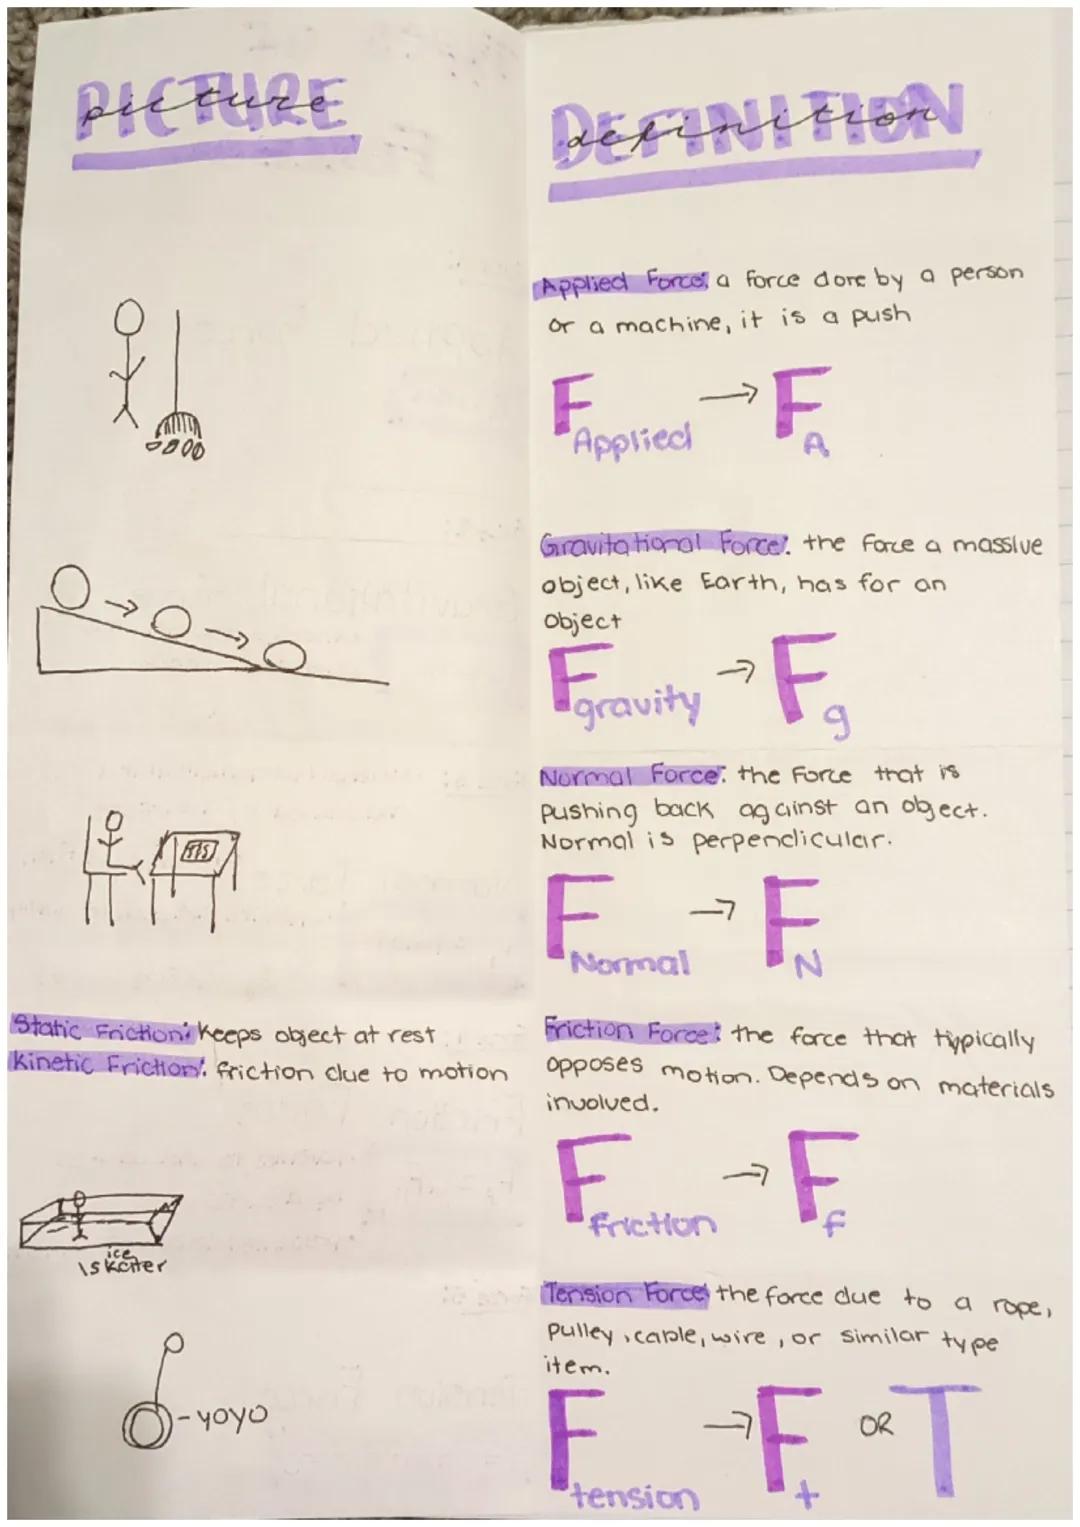 PICTURE
picture
DEFINITION
definition
Applied Force: a force done by a person
or a machine, it is a push
F Applied → F A
Gravitational Force: the force a massive
object, like Earth, has for an
object
F gravity → F g
Normal Force: the force that is
pushing back against an object.
Normal is perpendicular.
F Normal → F N
Static Friction: keeps object at rest
Kinetic Friction: friction due to motion
Friction Force: the force that typically
opposes motion. Depends on materials
involved.
F friction → F f
ice
skater
Tension Force: the force due to a rope,
pulley, cable, wire, or similar type
item.
-yoyo
F tension → F t OR T